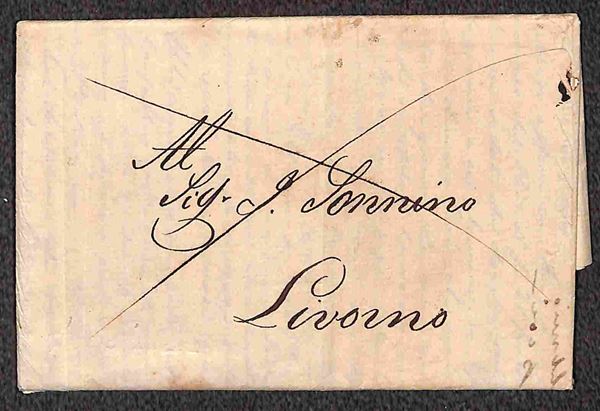 Al
Sigr. J. Sonnino
Livorno